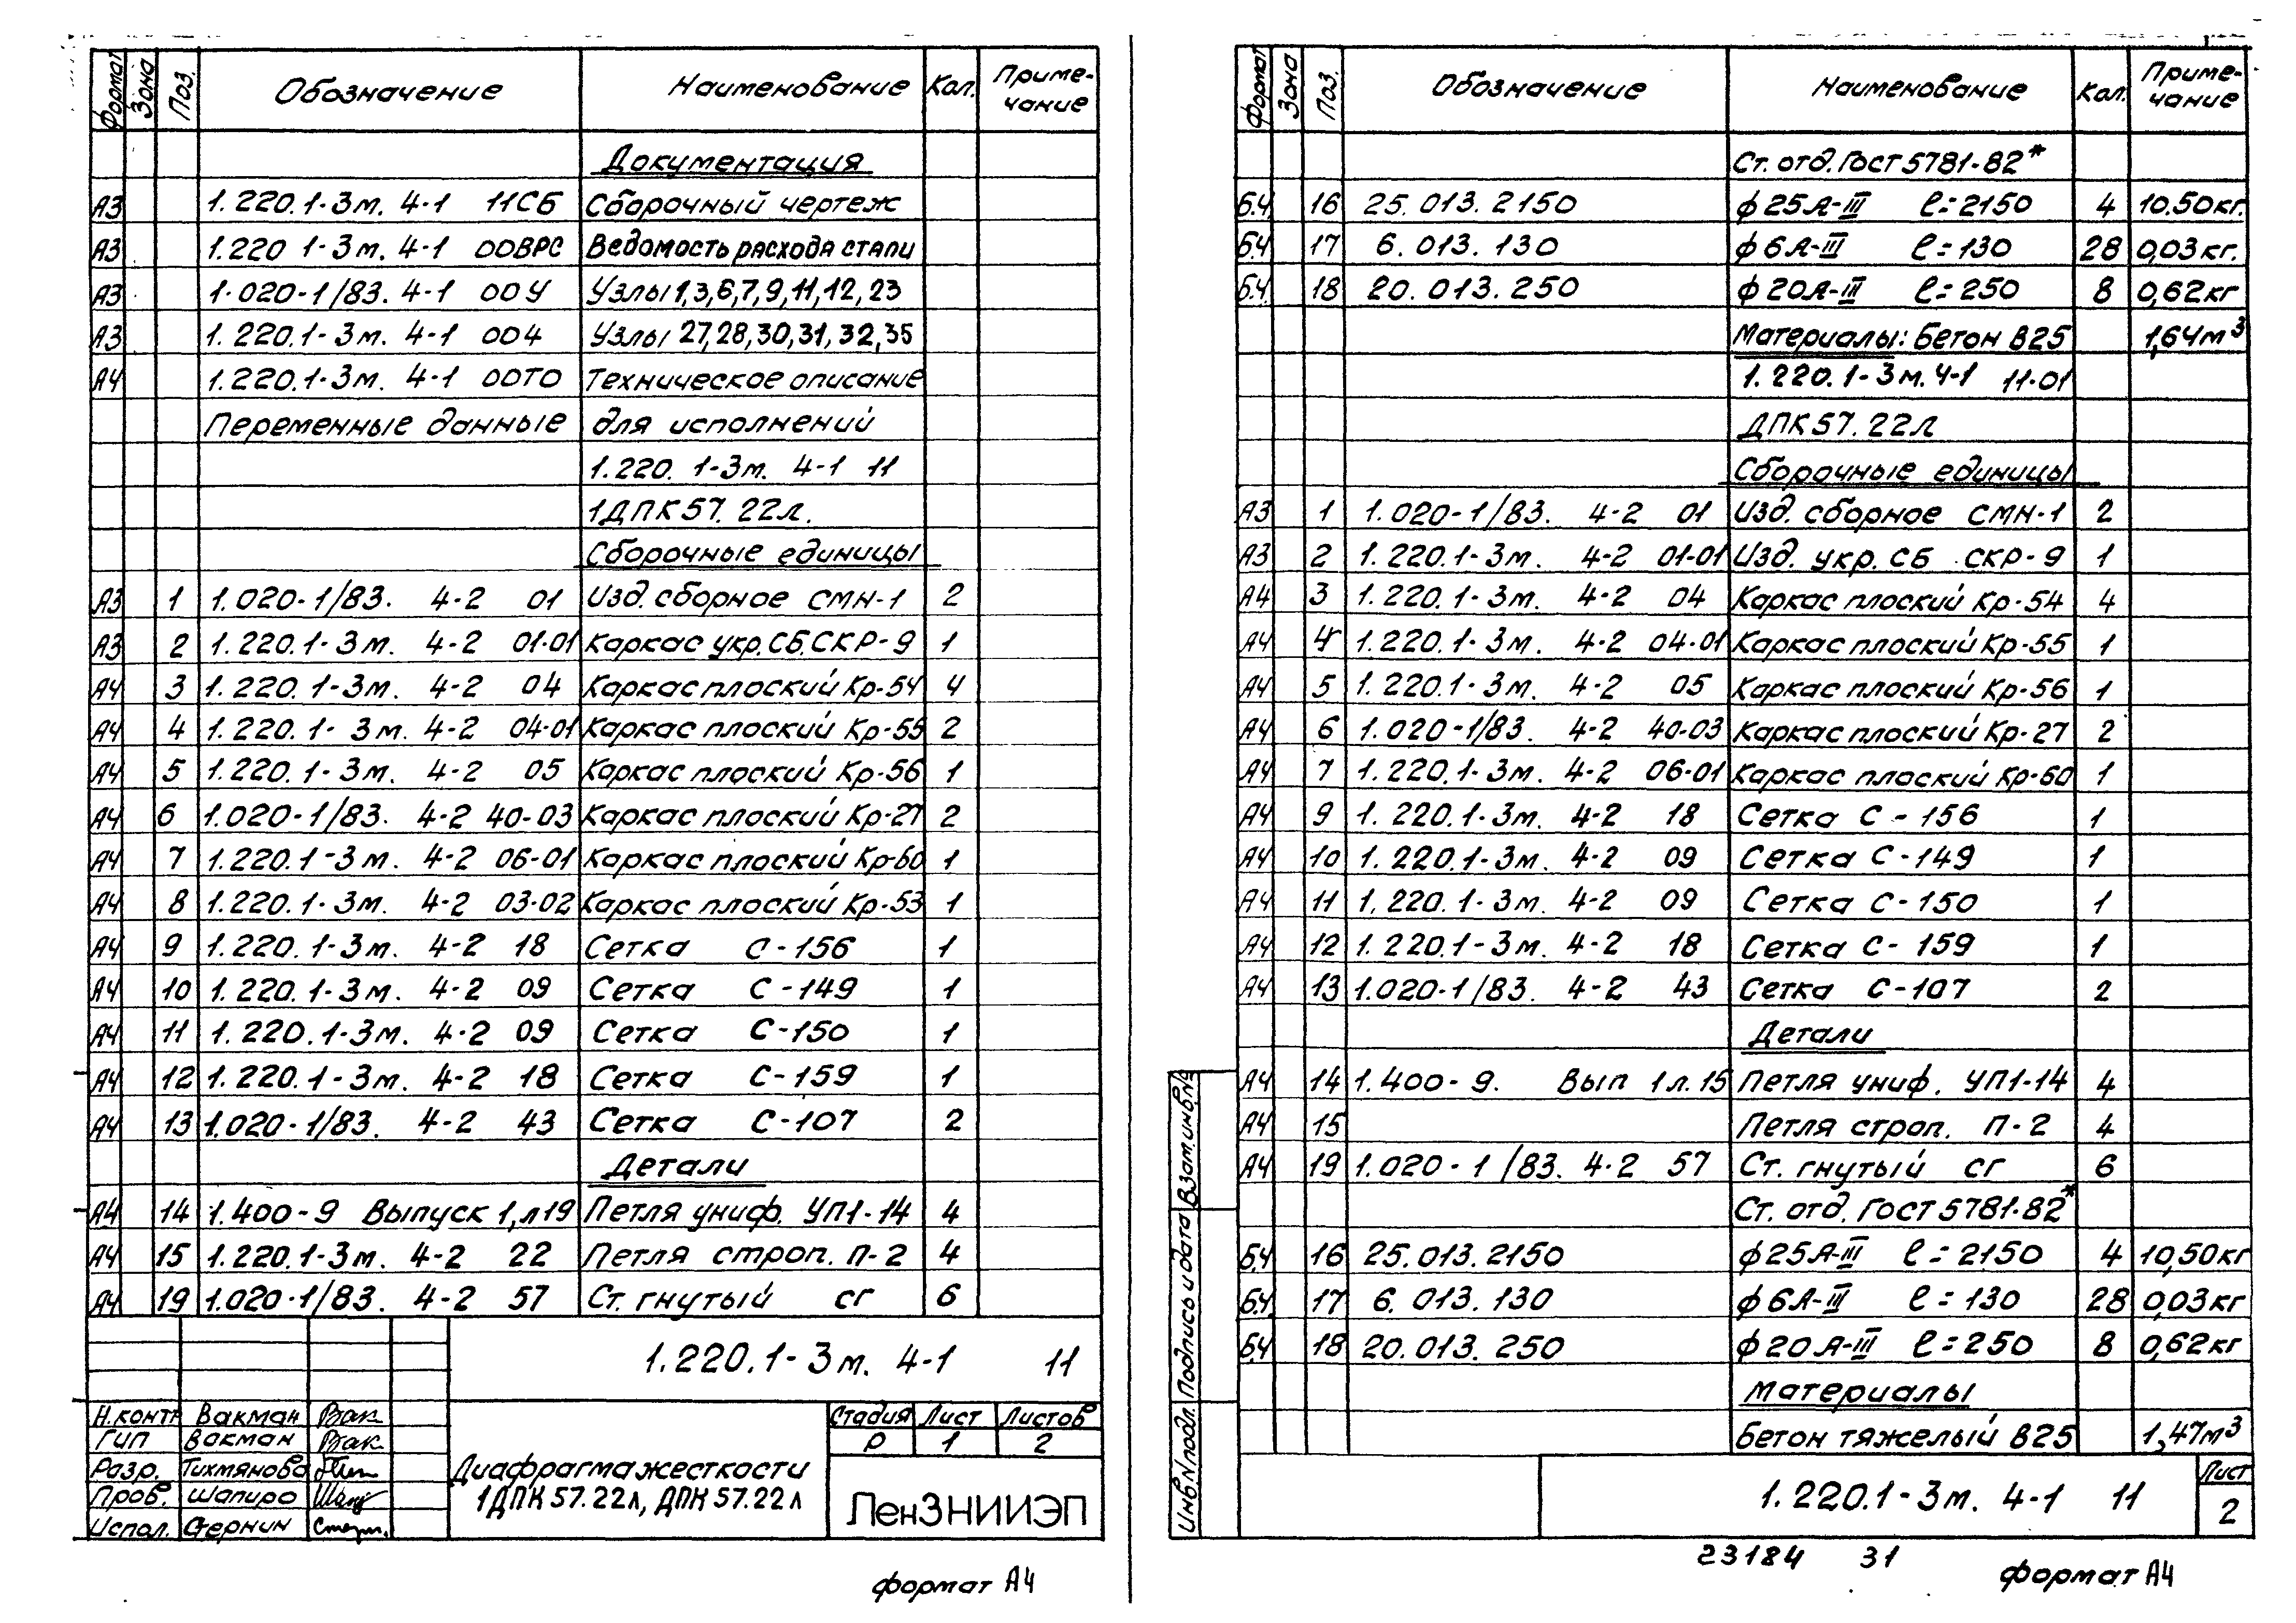 Формат Зона Поз. Обозначение Наименование Кол. Приме-
чание
Документация
А3 1.220.1-3м. 4-1 11СБ Сборочный чертеж
А3 1.220 1-3м. 4-1 00ВРС Ведомость расхода стали
А3 1.020-1/83. 4-1 00У Узлы 1,3,6,7,9,11,12,23
А3 1.220.1-3м. 4-1 004 Узлы 27,28,30,31,32,35
А4 1.220.1-3м. 4-1 00ТО Техническое описание
Переменные данные для исполнений
1.220. 1-3м. 4-1 11
1ДПК57. 22л.
Сборочные единицы
А3 1 1.020-1/83. 4-2 01 Изд. сборное СМН-1 2
А3 2 1.220.1-3м. 4-2 01-01 Каркас укр. СБ. СКР-9 1
А4 3 1.220.1-3м. 4-2 04 Каркас плоский Кр-54 4
А4 4 1.220.1-3м. 4-2 04-01 Каркас плоский Кр-55 2
А4 5 1.220.1-3м. 4-2 05 Каркас плоский Кр-56 1
А4 6 1.020-1/83. 4-2 40-03 Каркас плоский Кр-27 2
А4 7 1.220.1-3м. 4-2 06-01 Каркас плоский Кр-60 1
А4 8 1.220.1-3м. 4-2 03-02 Каркас плоский Кр-53 1
А4 9 1.220.1-3м. 4-2 18 Сетка С-156 1
А4 10 1.220.1-3м. 4-2 09 Сетка С-149 1
А4 11 1.220.1-3м. 4-2 09 Сетка С-150 1
А4 12 1.220.1-3м. 4-2 18 Сетка С-159 1
А4 13 1.020-1/83. 4-2 43 Сетка С-107 2
Детали
А4 14 1.400-9 Выпуск 1, л19 Петля униф. УП1-14 4
А4 15 1.220.1-3м. 4-2 22 Петля строп. П-2 4
А4 19 1.020-1/83. 4-2 57 Ст. гнутый СГ 6
1.220.1-3м. 4-1 11
Н.контр Вакман Вак
ГИП Вакман Вак
Разр. Тихмянова
Пров. Шапиро
Испол. Стернин
Диафрагма жесткости
1ДПК 57.22л, ДПК 57.22л
Стадия Лист Листов
Р 1 2
ЛенЗНИИЭП
формат А4
Формат Зона Поз. Обозначение Наименование Кол. Приме-
чание
Ст. отд. ГОСТ 5781-82*
Б.Ч. 16 25.013.2150 ф25А-III ℓ=2150 4 10.50кг.
Б.Ч. 17 6.013.130 ф6А-III ℓ=130 28 0,03кг.
Б.Ч. 18 20.013.250 ф20А-III ℓ=250 8 0,62кг
Материалы: Бетон В25 1,64м³
1.220.1-3м.4-1 11-01
ДПК57.22л
Сборочные единицы
А3 1 1.020-1/83. 4-2 01 Изд. сборное СМН-1 2
А3 2 1.220.1-3м. 4-2 01-01 Изд. укр. СБ СКР-9 1
А4 3 1.220.1-3м. 4-2 04 Каркас плоский Кр-54 4
А4 4 1.220.1-3м. 4-2 04-01 Каркас плоский Кр-55 1
А4 5 1.220.1-3м. 4-2 05 Каркас плоский Кр-56 1
А4 6 1.020-1/83. 4-2 40-03 Каркас плоский Кр-27 2
А4 7 1.220.1-3м. 4-2 06-01 Каркас плоский Кр-60 1
А4 9 1.220.1-3м. 4-2 18 Сетка С-156 1
А4 10 1.220.1-3м. 4-2 09 Сетка С-149 1
А4 11 1.220.1-3м. 4-2 09 Сетка С-150 1
А4 12 1.220.1-3м. 4-2 18 Сетка С-159 1
А4 13 1.020-1/83. 4-2 43 Сетка С-107 2
Детали
А4 14 1.400-9. Вып 1л.15 Петля униф. УП1-14 4
А4 15 Петля строп. П-2 4
А4 19 1.020-1/83. 4-2 57 Ст. гнутый СГ 6
Ст. отд. ГОСТ 5781-82*
Б.Ч. 16 25.013.2150 ф25А-III ℓ=2150 4 10,50кг
Б.Ч. 17 6.013.130 ф6А-III ℓ=130 28 0,03кг
Б.Ч. 18 20.013.250 ф20А-III ℓ=250 8 0,62кг
Материалы
Бетон тяжелый В25 1,47м³
Инв.N подл. Подпись и дата Взам.инв.N
1.220.1-3м. 4-1 11
Лист
2
23184 31
формат А4